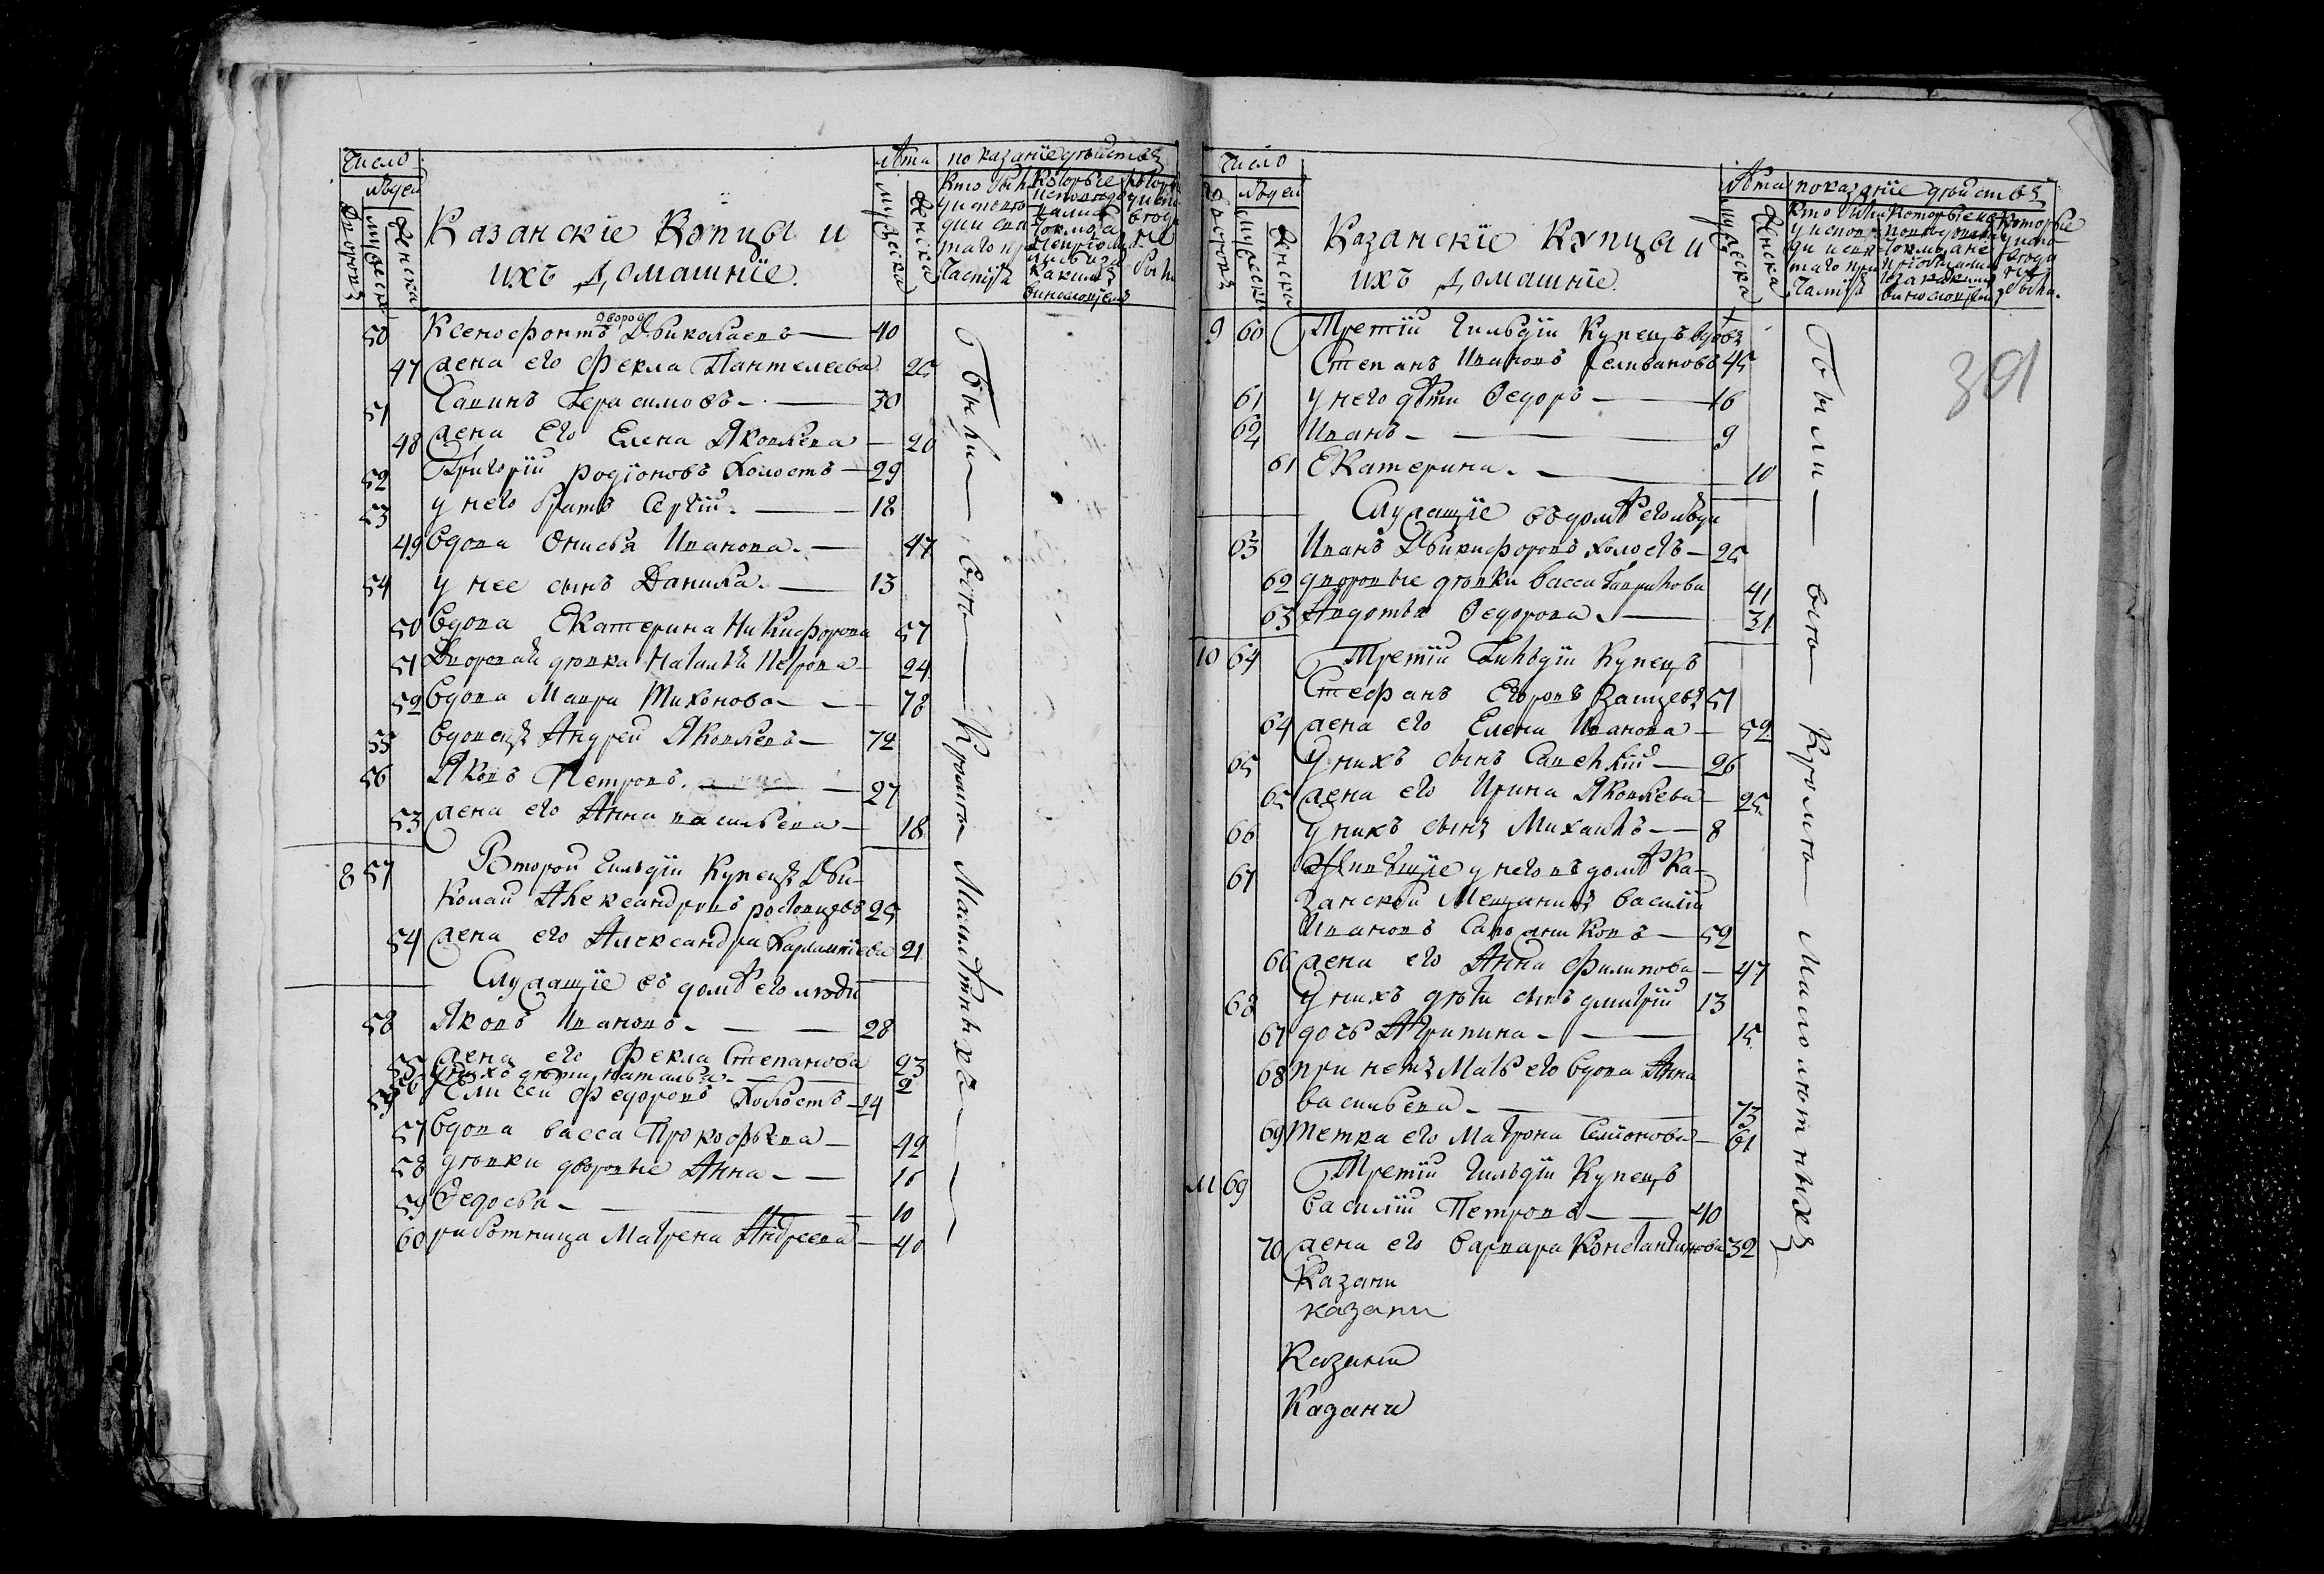 Число
людей
Дворовъ
мужеска
женска
Казанскіе Купцы и
ихъ домашніе.
лѣта
мужеска
женска
показаніе дѣйствъ
50 Ксенофонтъ Николаевъ — 40
47 жена его Фекла Пантелеева 25
51 Савинъ Герасимовъ — 30
48 жена Его Елена Яковлева — 20
52 Григорій родіоновъ холостъ — 29
53 у него братъ Сергій — 18
49 вдова Онисья Иванова — 47
54 у нее сынъ Данила — 13
50 вдова Екатерина Никифорова 57
51 Дворовая дѣвка Наталья Петрова 24
52 вдова Мавра Тихонова — 78
55 вдовецъ Андрей Яковлевъ — 72
56 Яковъ Петровъ — 27
53 жена его Анна васильева — 18
8 57 Второй гильдіи Купецъ Ни-
колай Александровъ ростовцовъ 25
54 жена его Александра Харлампіева 21
Служащіе въ домѣ его люди
58 Яковъ Ивановъ — 28
55 жена его Фекла Степанова 23
56 у нихъ дочь наталья — 2
59 Елисей Федоровъ холостъ — 24
57 вдова васса Прокофьева — 42
58 дѣвки дворовые Анна — 16
59 Федосья — 10
60 работница Матрена Андреева — 40
Были — всѣ — Кромѣ Малолѣтныхъ
Число
людей
Дворовъ
мужеска
женска
Казанскіе Купцы и
ихъ домашніе.
лѣта
мужеска
женска
показаніе дѣйствъ
391
9 60 Третій гильдіи Купецъ вдовъ
Степанъ Ивановъ Селивановъ 45
61 у него дѣти Федоръ — 16
62 Иванъ — 9
61 Екатерина — 10
Служащіе въ домѣ его люди
63 Иванъ Никифоровъ холостъ — 25
62 дворовые дѣвки васса Гаврилова 41
63 Авдотья Федорова — 31
10 64 Третій Гильдіи Купецъ
Стефанъ Егоровъ Зайцевъ 51
64 жена его Елена Иванова — 52
65 У нихъ сынъ Савелій — 26
65 жена его Ирина Яковлева — 25
66 у нихъ сынъ Михаилъ — 8
67 Живущіе у него въ домѣ Ка-
занской Мещанинъ василій
Ивановъ Сапожниковъ — 52
66 жена его Анна Филипова — 47
68 у нихъ дѣти сынъ дмитрій 13
67 дочь Агрипина — 15
68 при немъ Мать его вдова Анна
васильева — 73
69 тетка его Матрона Семионова — 61
11 69 Третій гильдіи Купецъ
василій Петровъ — 40
70 жена его варвара Константинова 32
Казани
казани
Казани
Казани
Были — всѣ — Кромѣ — Малолѣтныхъ